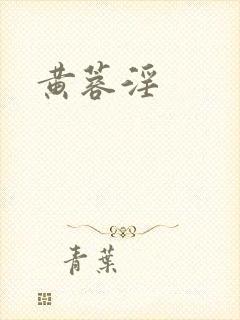 黄蓉淫
青葉